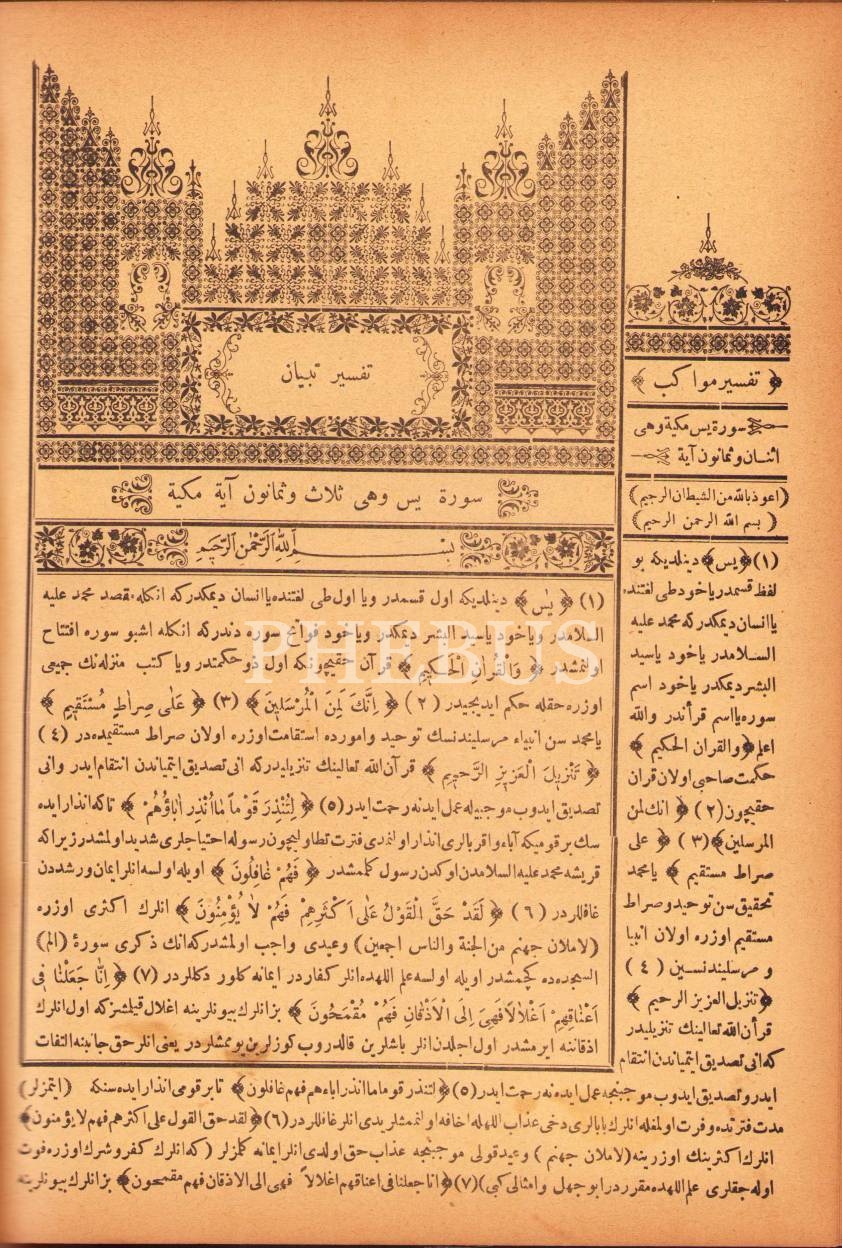 تفسير تبيان
سورة يس وهى ثلاث وثمانون آية مكية
بسم الله الرحمن الرحيم
(١) ﴿ يٰسٓ ﴾ دينلديكه اول قسمدر ويا اول طى لغتنده يا انسان ديمكدركه انكله مقصد محمد عليه
السلامدر وياخود ياسيد البشر ديمكدر وياخود فواتح سوره دندركه انكله اشبو سوره افتتاح
اولنمشدر ﴿ وَالْقُرْاٰنِ الْحَكٖيمِ ﴾ قرآن حقيچونكه اول ذو حكمتدر ويا كتب منزله نك جميعى
اوزره حقله حكم ايديجيدر (٢) ﴿ اِنَّكَ لَمِنَ الْمُرْسَلٖينَ ﴾ (٣) ﴿ عَلٰى صِرَاطٍ مُسْتَقٖيمٍ ﴾
يا محمد سن انبياء مرسليندنسك توحيد وامورده استقامت اوزره اولان صراط مستقيمده در (٤)
﴿ تَنْزٖيلَ الْعَزٖيزِ الرَّحٖيمِ ﴾ قرآن الله تعالينك تنزيليدركه انى تصديق ايتمياندن انتقام ايدر وانى
تصديق ايدوب موجبيله عمل ايدنه رحمت ايدر (٥) ﴿ لِتُنْذِرَ قَوْماً مَا اُنْذِرَ اٰبَاؤُهُمْ ﴾ تاكه انذار ايده
سك بر قوميكه آباء واقربالرى انذار اولنمدى فترت تطاولیچون رسوله احتياجلرى شديد اولمشدر زيراكه
قريشه محمد عليه السلامدن اوكدن رسول كلمامشدر ﴿ فَهُمْ غَافِلُونَ ﴾ اويله اولسه انلر ايمان ورشددن
غافللردر (٦) ﴿ لَقَدْ حَقَّ الْقَوْلُ عَلٰى اَكْثَرِهِمْ فَهُمْ لَا يُؤْمِنُونَ ﴾ انلرك اكثرى اوزره
(لاملان جهنم من الجنة والناس اجمعين) وعيدى واجب اولمشدركه انك ذكرى سورۀ (الم)
السجده ده كچمشدر اويله اولسه علم اللهده انلر كفاردر ايمانه كلور دكللردر (٧) ﴿ اِنَّا جَعَلْنَا فٖى
اَعْنَاقِهِمْ اَغْلَالاً فَهِىَ اِلَى الْاَذْقَانِ فَهُمْ مُقْمَحُونَ ﴾ بز انلرك بيونلرينه اغلال قيلمشزكه اول انلرك
اذقاننه ايرمشدر اول اجلدن انلر باشلرين قالدروب كوزلرين يوممشلردر يعنى انلر حق جانبنه التفات
﴿ تفسير مواكب ﴾
سورة يس مكية وهى
اثنان وثمانون آية
(اعوذ بالله من الشيطان الرجيم)
( بسم الله الرحمن الرحيم )
(١) ﴿يس﴾ دينلديكه بو
لفظ قسمدر ياخود طى لغتنده
يا انسان ديمكدركه محمد عليه
السلامدر ياخود ياسيد
البشر ديمكدر ياخود اسم
سوره يا اسم قرآندر والله
اعلم ﴿والقران الحكيم ﴾
حكمت صاحبى اولان قران
حقيچون (٢) ﴿ انك لمن
المرسلين﴾ (٣) ﴿ على
صراط مستقيم ﴾ يا محمد
تحقيق سن توحيد وصراط
مستقيم اوزره اولان انبيا
و مرسليندنسين (٤)
﴿تنزيل العزيز الرحيم ﴾
قرآن الله تعالينك تنزيليدر
كه انى تصديق ايتمياندن انتقام
ايدر وتصديق ايدوب موجبنجه عمل ايدنه رحمت ايدر (٥) ﴿لتنذر قوما ما انذر اباءهم فهم غافلون﴾ تا بر قومى انذار ايده سنكه (ايتمزلر)
مدت فترتده وفرت اولمغله انلرك بابالرى دخى عذاب اللهله اخافه اولنمامشلريدى انلر غافللردر (٦) ﴿لقد حق القول على اكثرهم فهم لا يؤمنون﴾
انلرك اكثرينك اوزرينه (لاملان جهنم ) وعيد قولى موجبنجه عذاب حق اولدى انلر ايمانه كلمزلر (كه انلرك كفر وشرك اوزره فوت
اوله جقلرى علم اللهده مقرردر ابوجهل وامثالى كبى) (٧) ﴿انا جعلنا فى اعناقهم اغلالاً فهى الى الاذقان فهم مقمحون﴾ بز انلرك بيونلرينه
PHEBUS